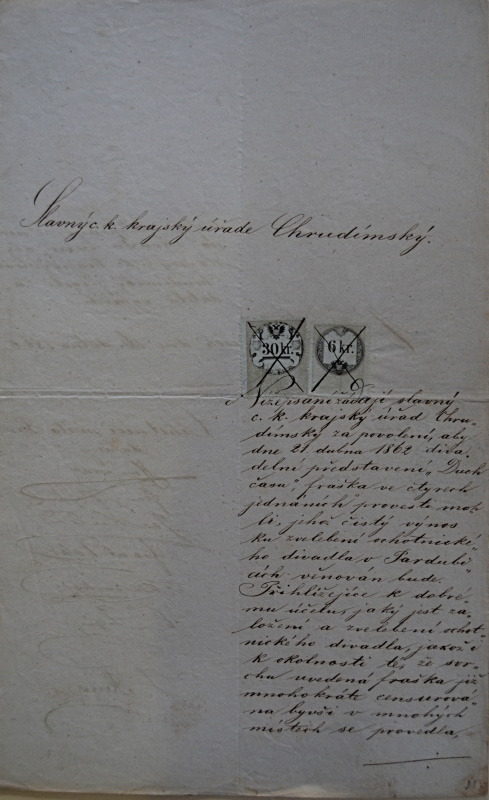 Slavný c. k. krajský úřade Chrudímský.
30 kr.
6 kr.
Nížepsaní žádají slavný
c. k. krajský úřad Chru-
dímský za povolení, aby
dne 21 dubna 1862 diva-
delní představení, "Duch
času", fraška ve čtyrech
jednáních" provesti moh-
li, jehož čistý výnos
ku zvelebení ochotnické-
ho divadla v Pardubi-
cích věnován bude.
Přihlížejíce k dobré-
mu účelu, jaký jest za-
ložení a zvelebení ochot-
nického divadla, jakož i
k okolnosti té, že svr-
chu uvedená fraška již
mnohokráte censurová-
na byvši v mnohých
místech se provedla,